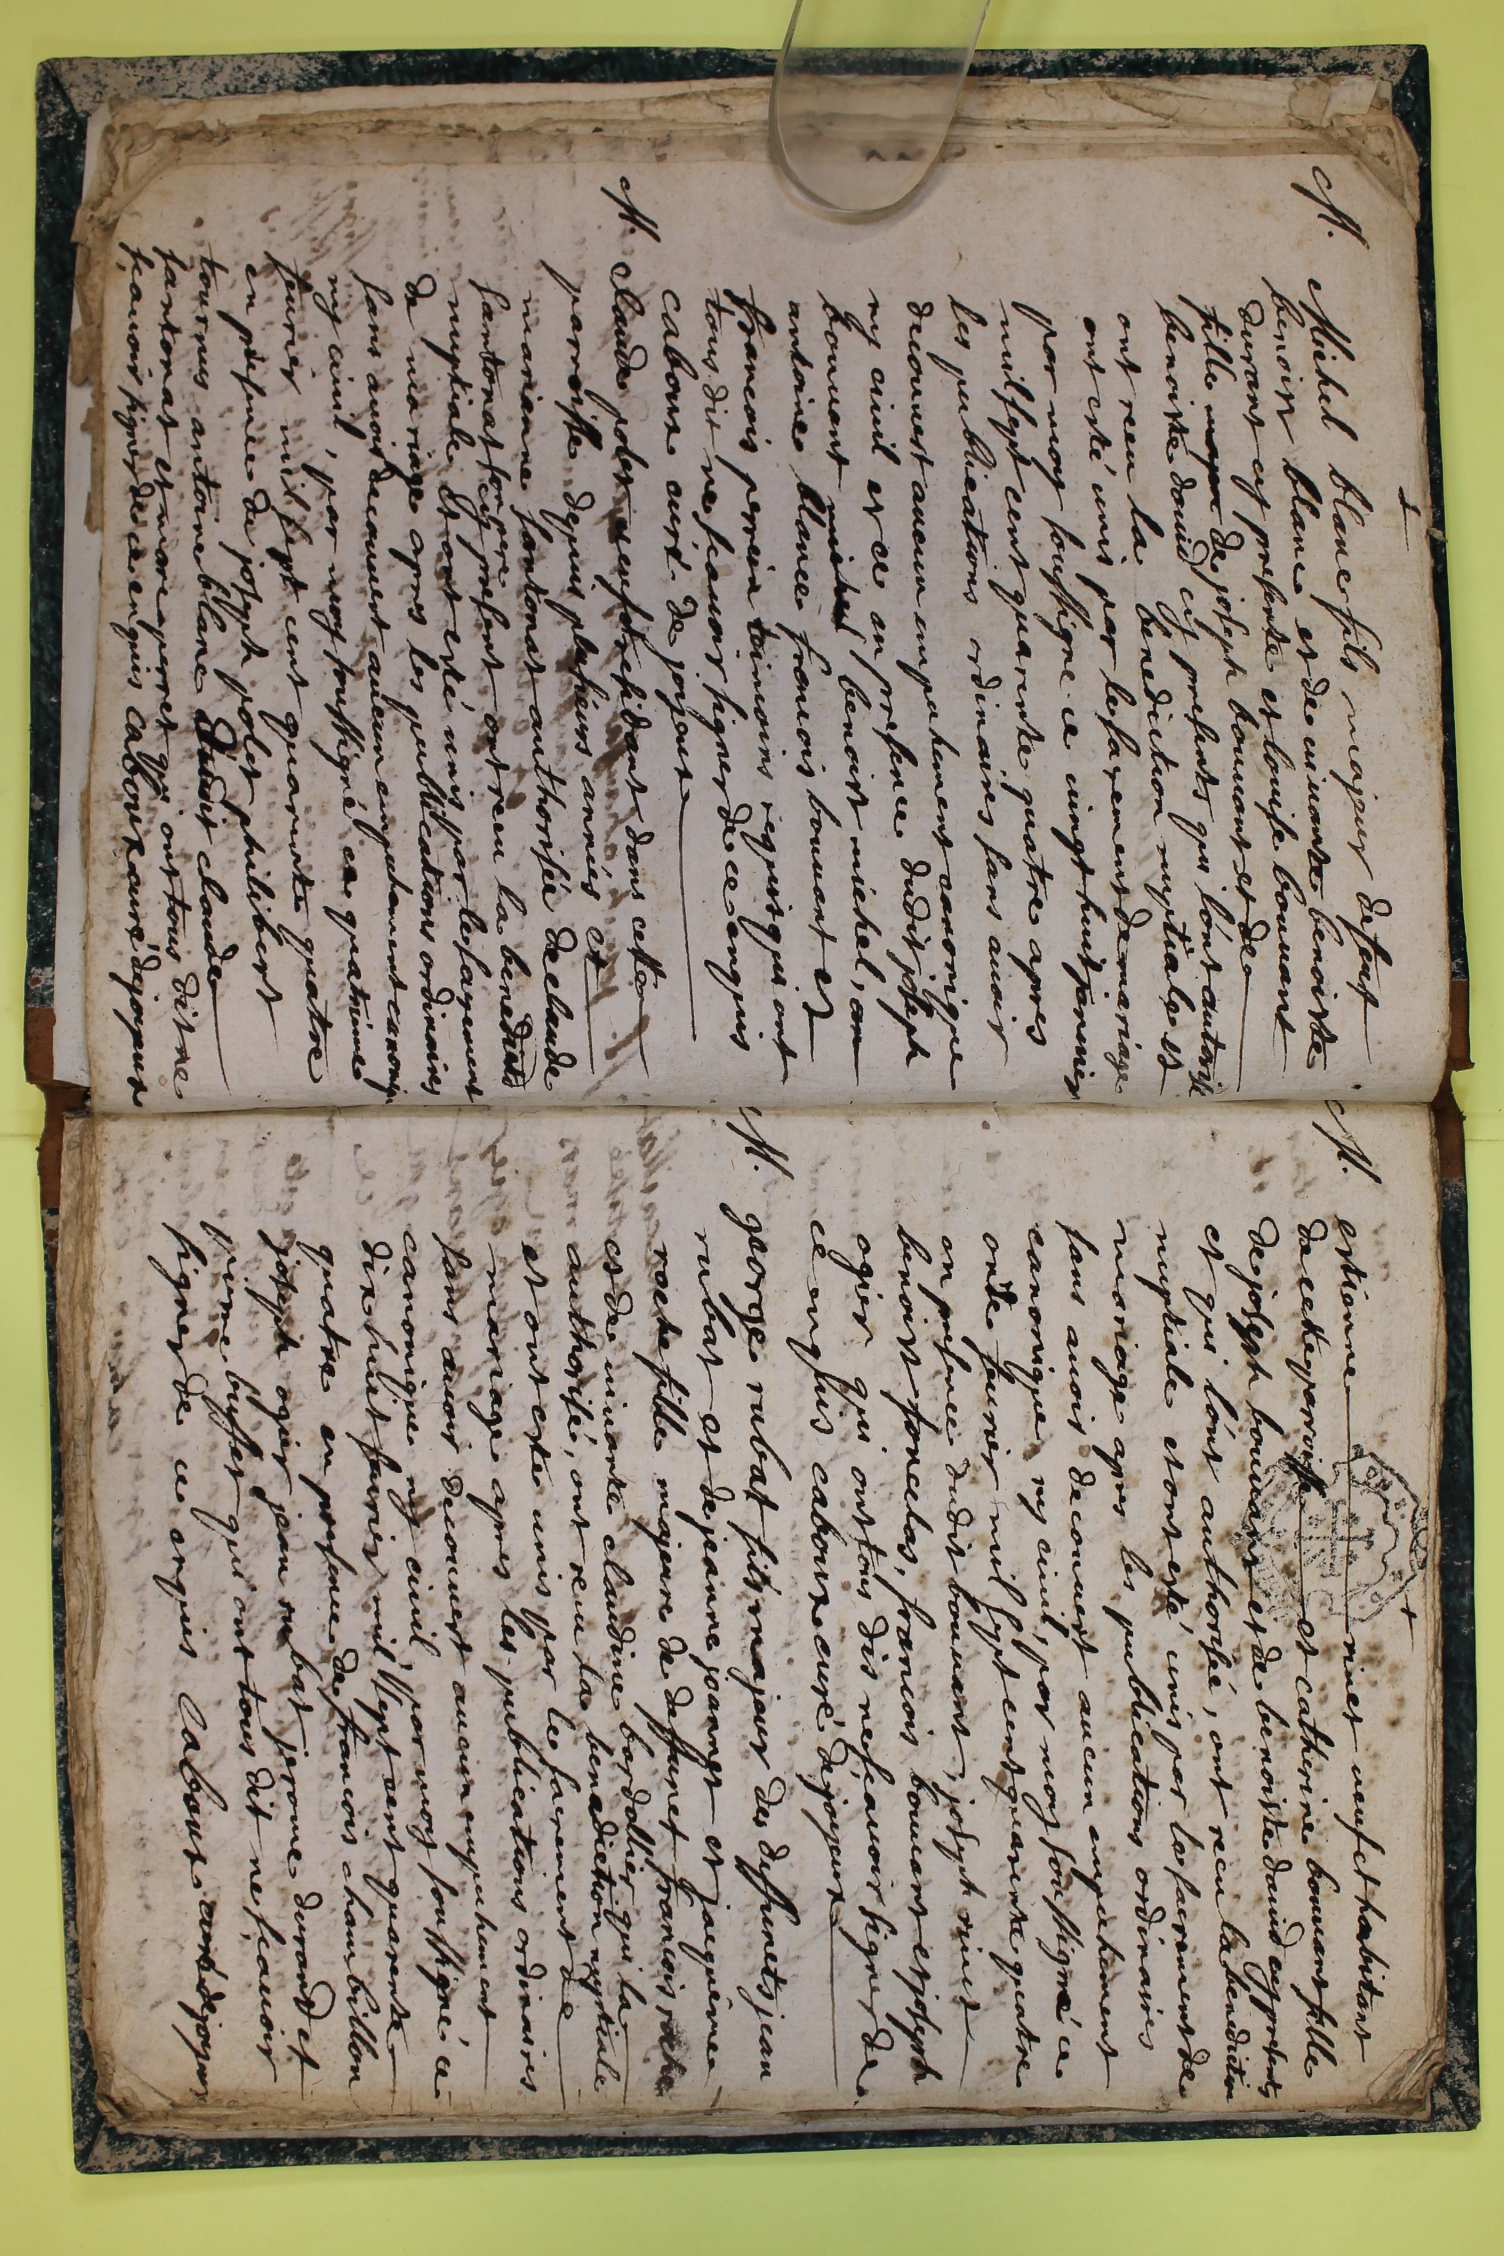 +
M. Michel blanc fils majeur defeut
benoist blanc et de vivante benoiste
durant cy presente et louise bouuant
fille de joseph bouuant et de
benoiste dauid cy presents qui lónt autorisée
ont receu la benediction nuptiale et
ont esté unis par le sacrement de mariage
par moy soussigne ce vingt huit janvier
mil sept cent quarente quatre apres
les publications ordinaires sans auoir
decouuert aucun empechement canonique
ny ciuil et ce en presence dudit joseph
bouuant michel benoist michel, 
antoine blanc francois bouuant et
francois perrin témoins requis qui ont
tous dit ne scauoir signer de ce enquis
cabout curé de joyeux
M. Claude polet veuf residant dans cette
parroisse depuis plusieurs années et
mariane fantonat authorisée de claude
fantonat son pere cy present ont receu la benediction
nuptiale et ont esté unis par le sacrement
de mariage apres les publications ordinaires
sans auoir decouuert aucun empechement canonique
ny ciuil, par moy soussigné ce quatrieme
feurier mil sept cent quarante quatre
en presence de joseph polet philibert
tournus antoine blanc dudit claude
fantonat et marc perret qui ont tous dit ne
scauoir signer de ce enquis cabout curé de joyeux
+
M. estienne vinet veuf et habitant
de cette parroisse et catherine bouuant fille
de joseph bouuant et de benoiste dauid cy presents
et qui lónt authorisée, ont receu la benediction
nuptiale et ont esté unis par le sacrement de
mariage apres les publications ordinaires
sans auoir decouuert aucun empechement
canonique ny ciuil, par moy soussigné ce
onze feurier mil sept cent quarente quatre
en presence dudit bouuant, joseph vinet
benoist foncelas, francois bouuant et joseph
ogier qui ont tous dis ne scauoir signer de
ce enquis cabout curé de joyeux
M. george rubat fils majeur des deffunets jean
rubat et de jeanne joannet et jaquéme
roche fille majeure de deffunct francois roche
et de vivante claudine bardollier qui la
authorisé, ont receu la benediction nuptiale
et ont esté unis par le sacrement de
mariage apres les publications ordinaires
sans auoir decouuert aucun empechement
canonique ny ciuil, par moy soussigné ce
dix huit feurier mil sept cent quarente
quatre en presence de francois chambillon
joseph ogier jean rubat jerome durand et
pierre buffet qui ont tous dit ne scauoir
signer de ce enquis Cabout curé de joyeux